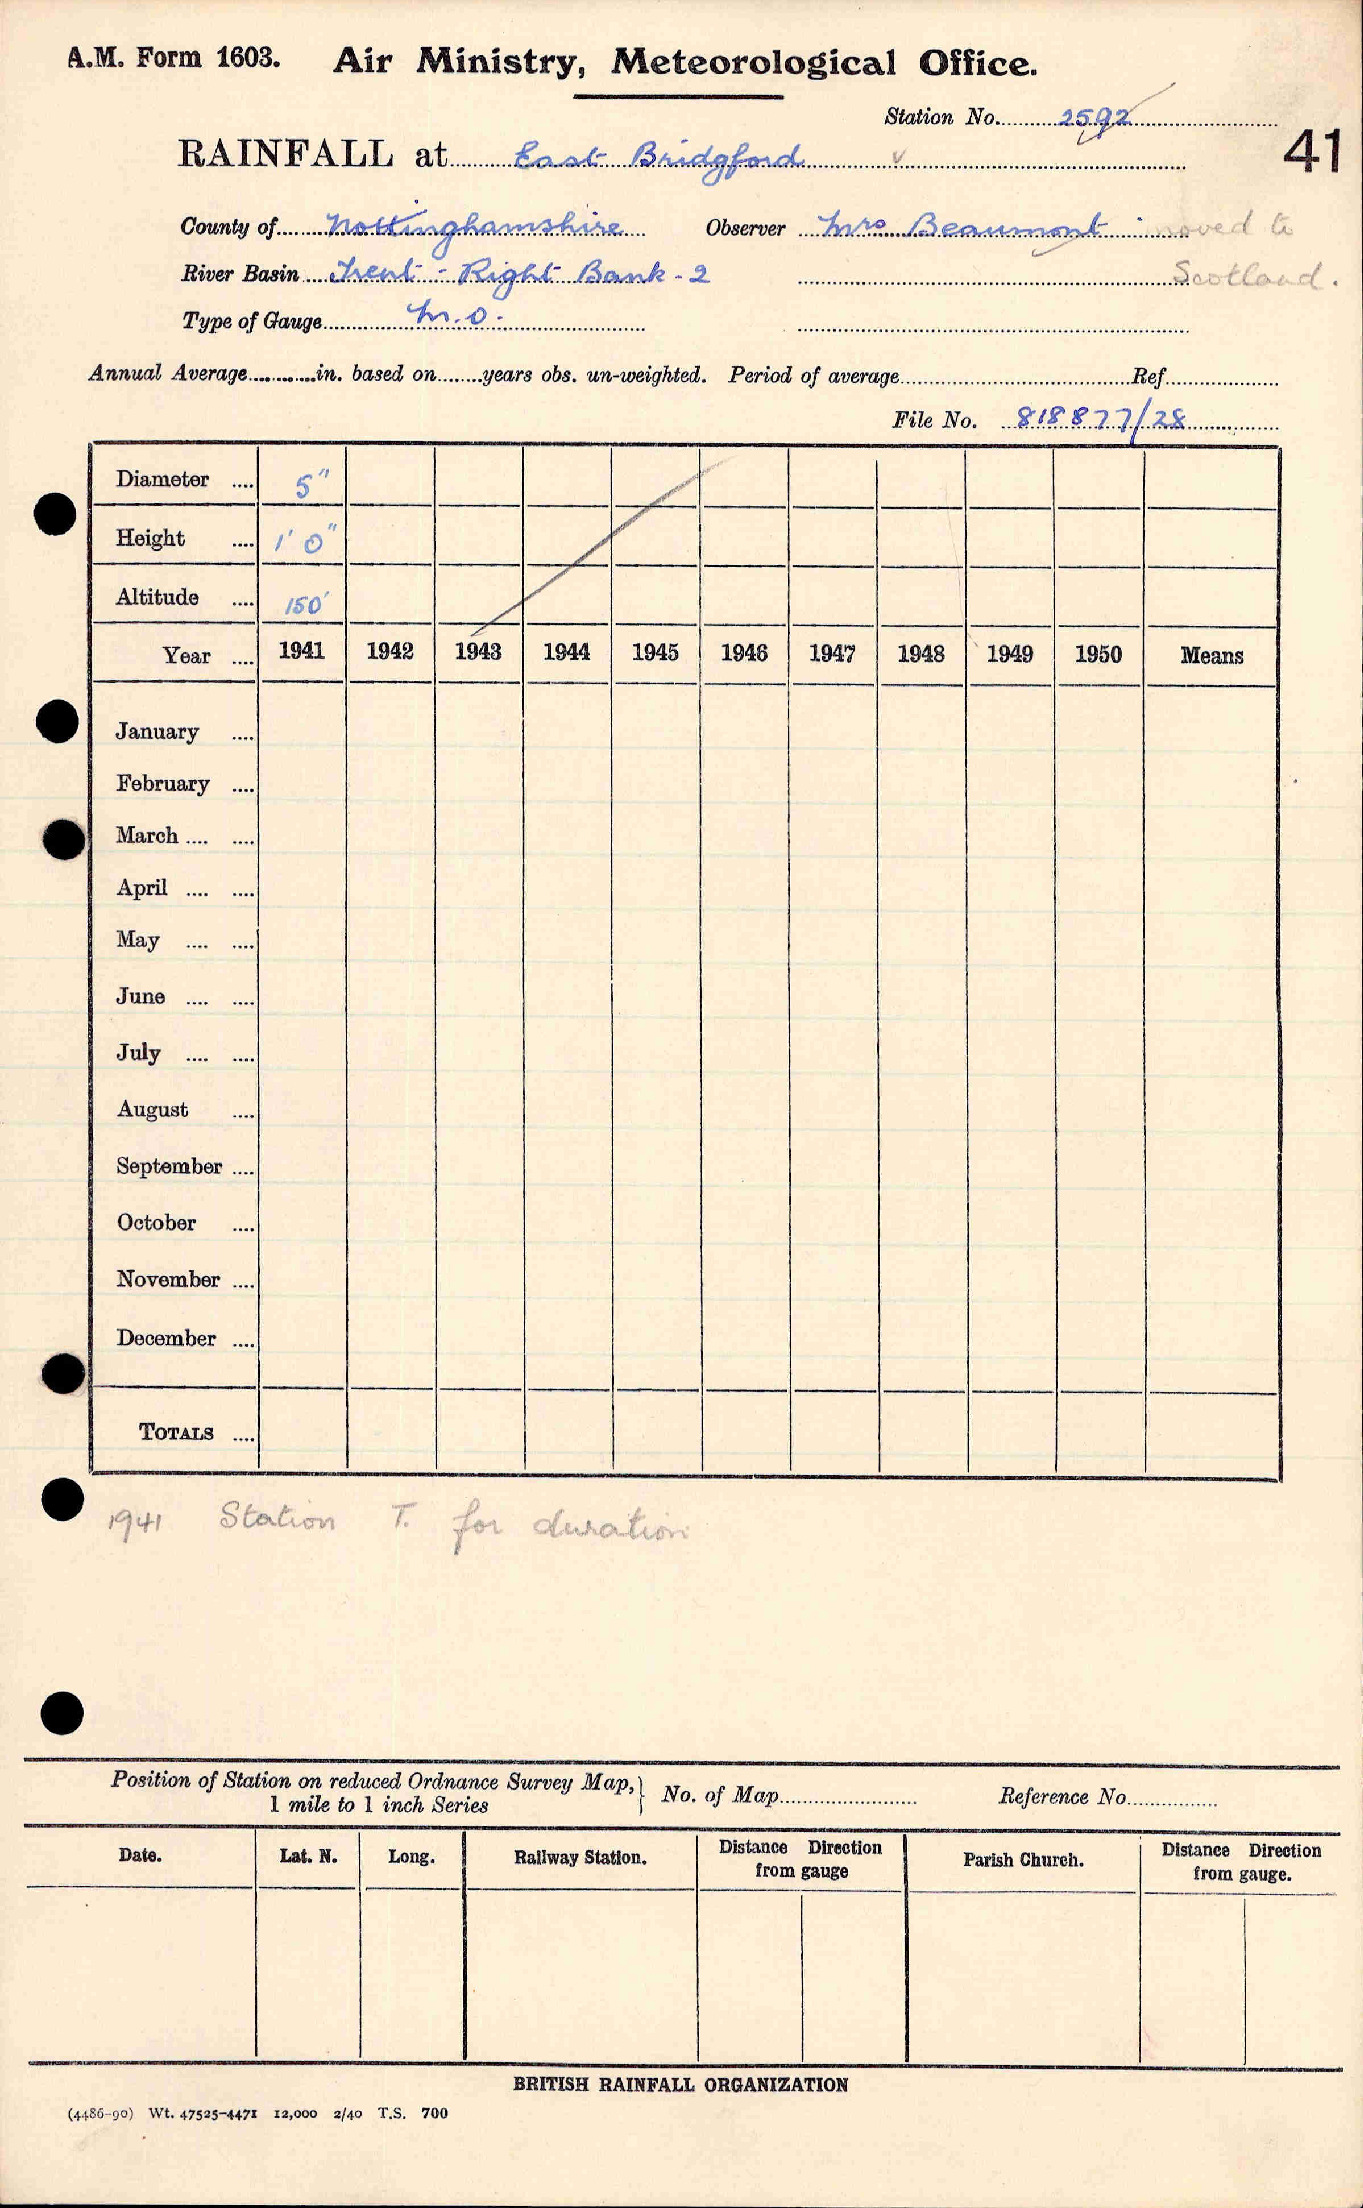 A.M. Form 1603. Air Ministry, Meteorological Office.
Station No. 2592
41
RAINFALL at East Bridgford
County of Nottinghamshire Observer Mrs Beaumont moved to
River Basin Trent - Right Bank - 2 Scotland.
Type of Gauge M.O.
Annual Average............in. based on........years obs. un-weighted. Period of average........ Ref........
File No. 818877/28
Diameter .... 5"
Height .... 1' 0"
Altitude .... 150'
Year .... 1941 1942 1943 1944 1945 1946 1947 1948 1949 1950 Means
January ....
February ....
March .... ....
April .... ....
May .... ....
June .... ....
July .... ....
August ....
September ....
October ....
November ....
December ....
TOTALS ....
1941 Station T. for duration
Position of Station on reduced Ordnance Survey Map, } No. of Map........ Reference No........
1 mile to 1 inch Series
Date. Lat. N. Long. Railway Station. Distance Direction from gauge Parish Church. Distance Direction from gauge.
BRITISH RAINFALL ORGANIZATION
(4486-90) Wt. 47525-4471 12,000 2/40 T.S. 700